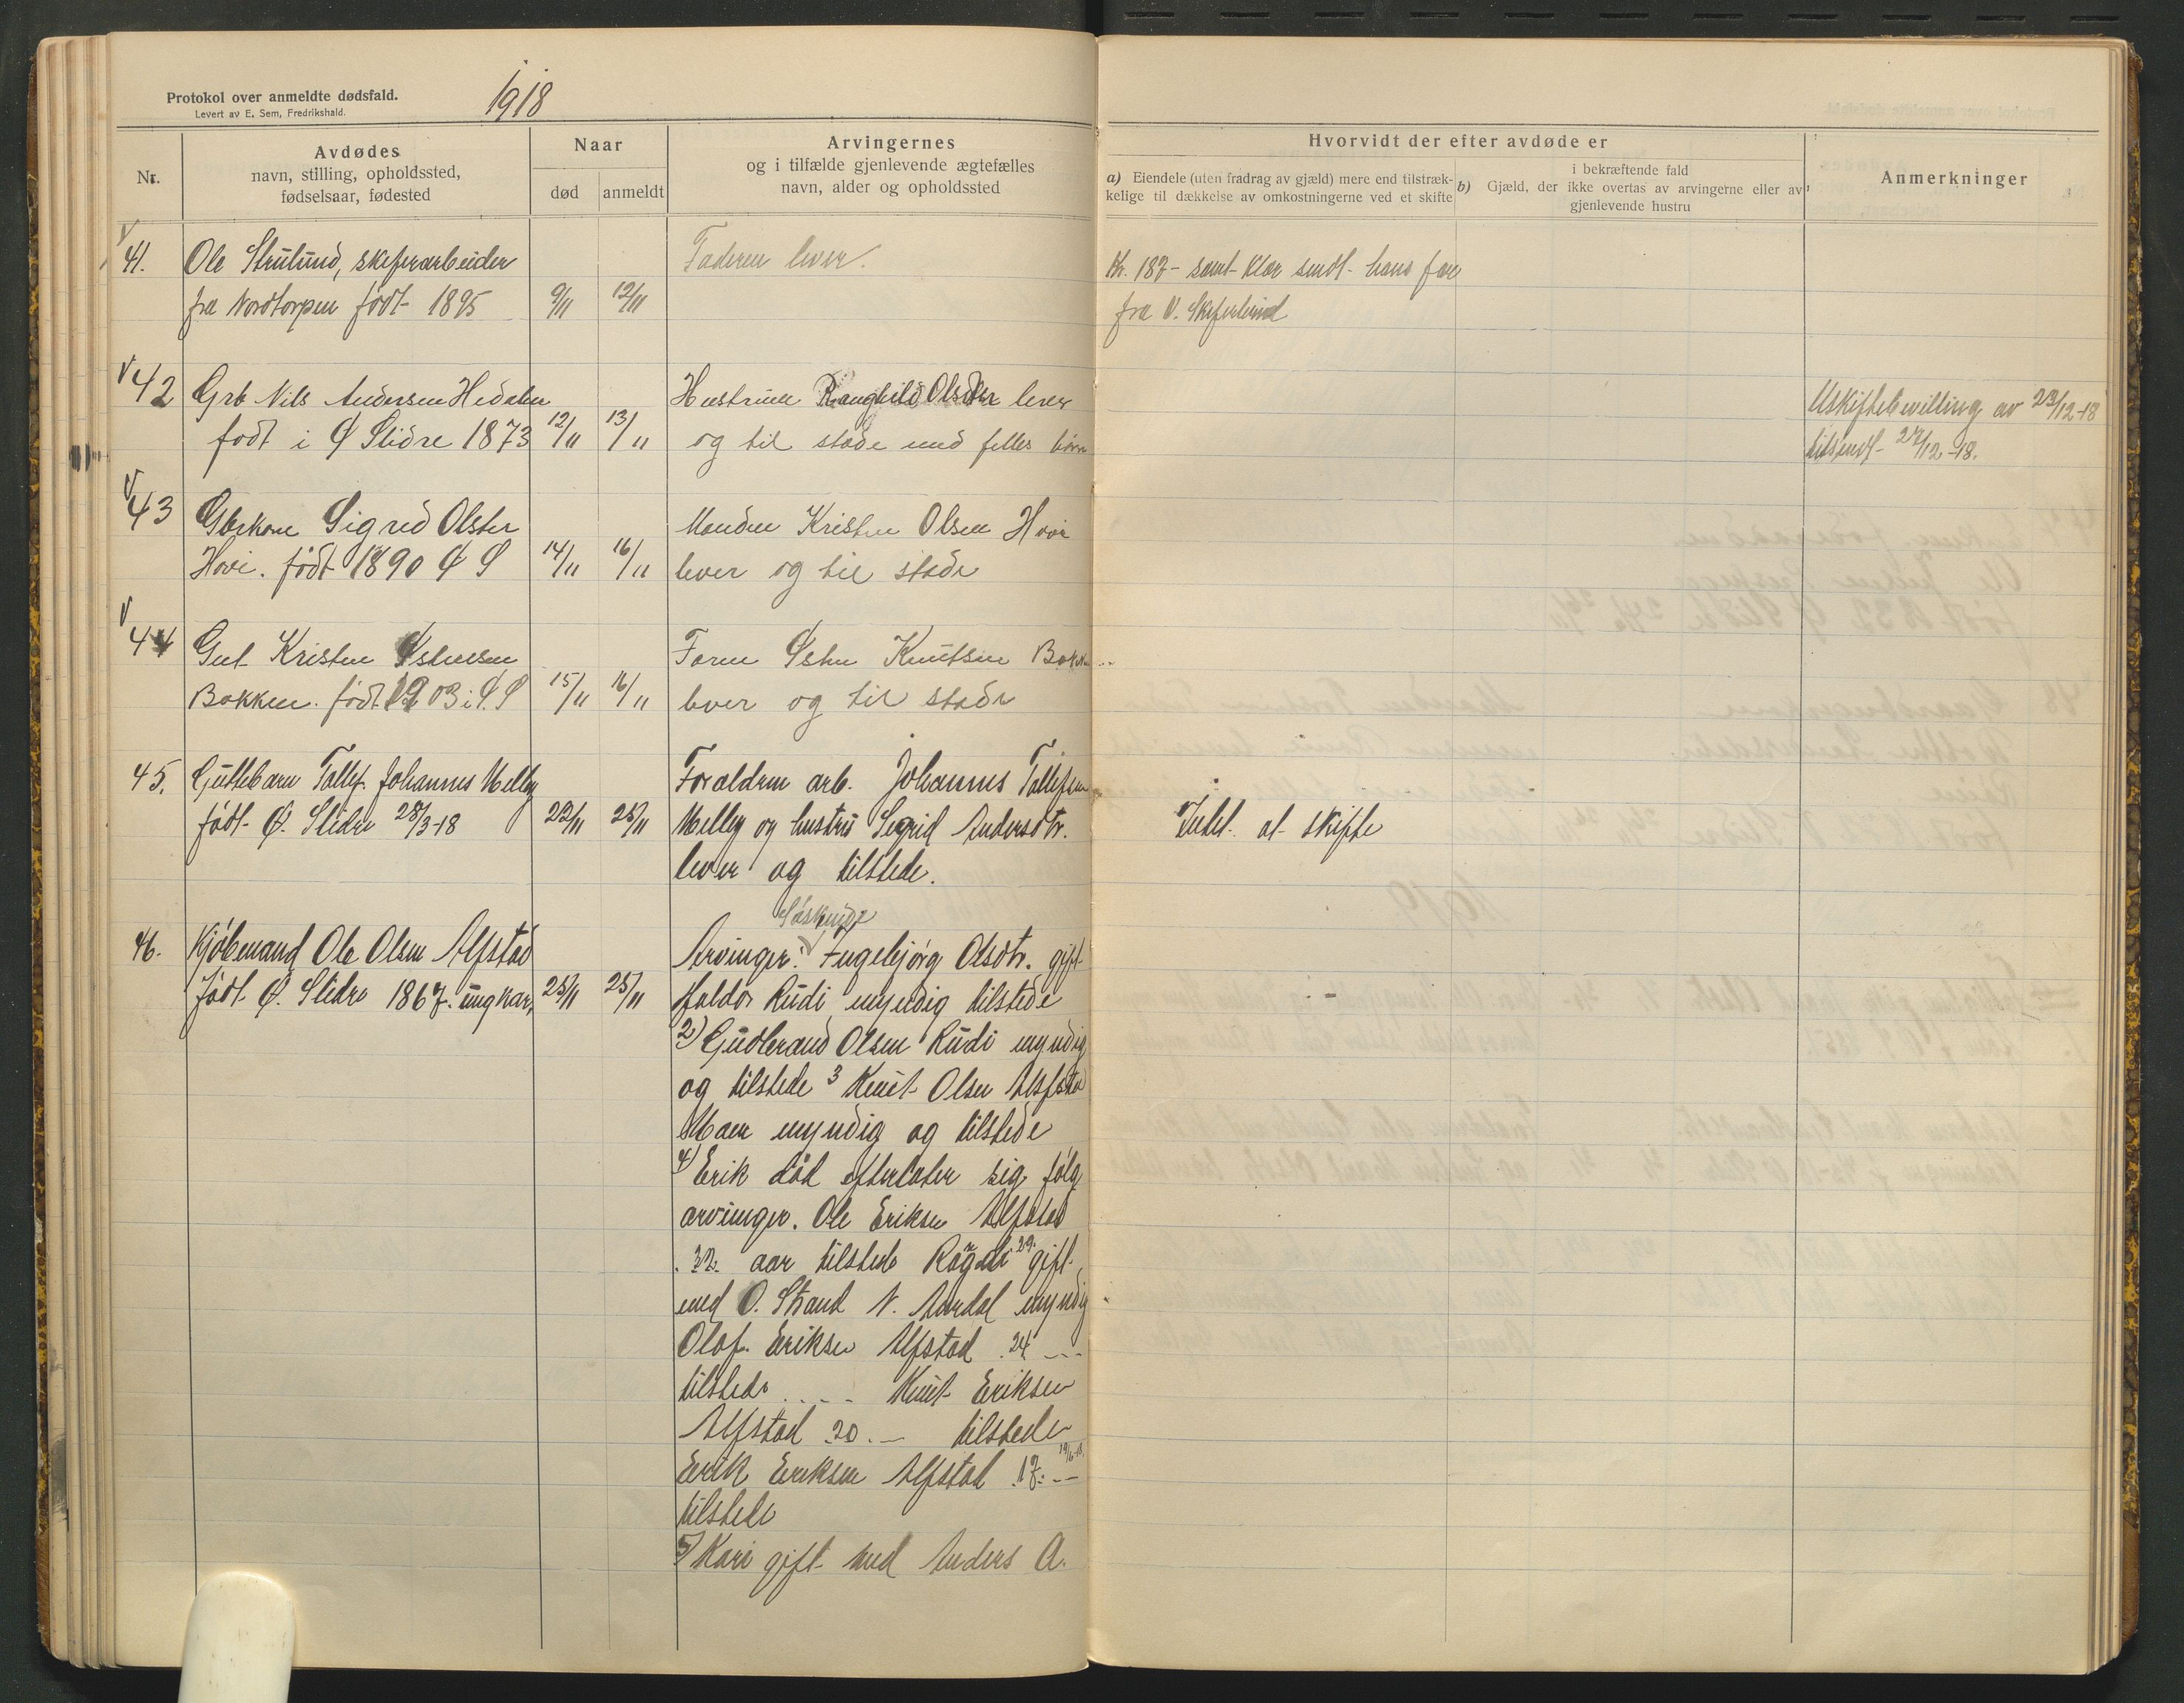 Protokol over anmeldte dødsfald.
Levert av E. Sem, Fredrikshald.
1918
Nr.
Avdødes
navn, stilling, opholdssted,
fødselsaar, fødested
Naar
død
anmeldt
Arvingernes
og i tilfælde gjenlevende ægtefælles
navn, alder og opholdssted
Hvorvidt der efter avdøde er
a) Eiendele (uten fradrag av gjæld) mere end tilstræk-
kelige til dækkelse av omkostningerne ved et skifte
i bekræftende fald
b) Gjæld, der ikke overtas av arvingerne eller av
gjenlevende hustru
Anmerkninger
41. Ole Strulund, skiferarbeider
fra Nordtorpen født 1895 9/11 12/11
Faderen lever.
Kr. 187- samt klær sendt hans far
fra V. Skiferbrud
42 Grb Nils Andersen Hedalen
født i Ø Slidre 1873 12/11 13/11
Hustruen Ranghild Olsdtr lever
og til stede med felles børn
Uskiftebevilling av 23/12-18
tilsendt 27/12-18.
43 Gbrkone Sigrid Olsdtr
Hovi. født 1890 Ø S 14/11 16/11
Manden Kristen Olsen Hovi
lever og til stede
44 Gut Kristen Østensen
Bakken. født 1903 i Ø. S 15/11 16/11
Faren Østen Knutsen Bakken
lever og til stede
45. Guttebarn Tollef Johannes Melby
født Ø. Slidre 28/3-18 22/11 25/11
Foraldrene arb. Johannes Tollefsen
Melby og hustru Sigrid Andersdtr.
lever og tilstede.
Intet at skifte
46. Kjøbmand Ole Olsen Alfstad
født Ø. Slidre 1867. ungkar, 25/11 25/11
Søskende
Arvinger: Ingebjørg Olsdtr. gift
Haldor Rudi myndig tilstede
2) Gudbrand Olsen Rudi myndig
og tilstede 3 Knut Olsen Alfstad
Moen myndig og tilstede
4) Erik død efterlater sig følg
arvinger. Ole Eriksen Alfstad
32 aar tilstede 29. gift
med O. Strand N. Aurdal myndig
Olaf Eriksen Alfstad 24 --
tilstede Knut Eriksen
Alfstad 20. - tilstede
Erik Eriksen Alfstad 17. -
tilstede
5) Kari gift med Anders A.